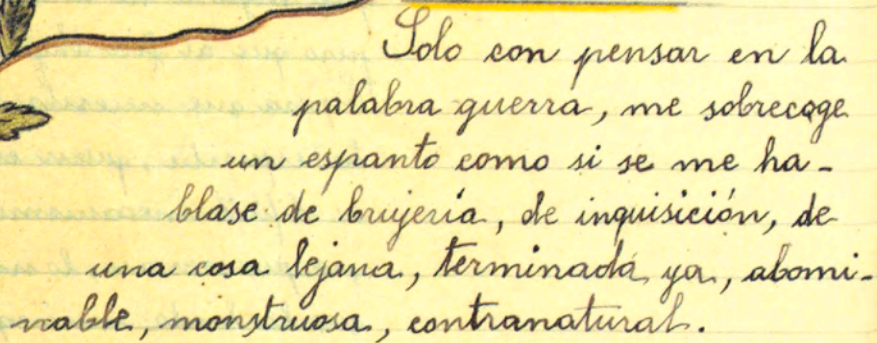 Solo con pensar en la
palabra guerra, me sobrecoge
un espanto como si se me ha-
blase de brujería, de inquisición, de
una cosa lejana, terminada ya, abomi-
nable, monstruosa, contranatural.